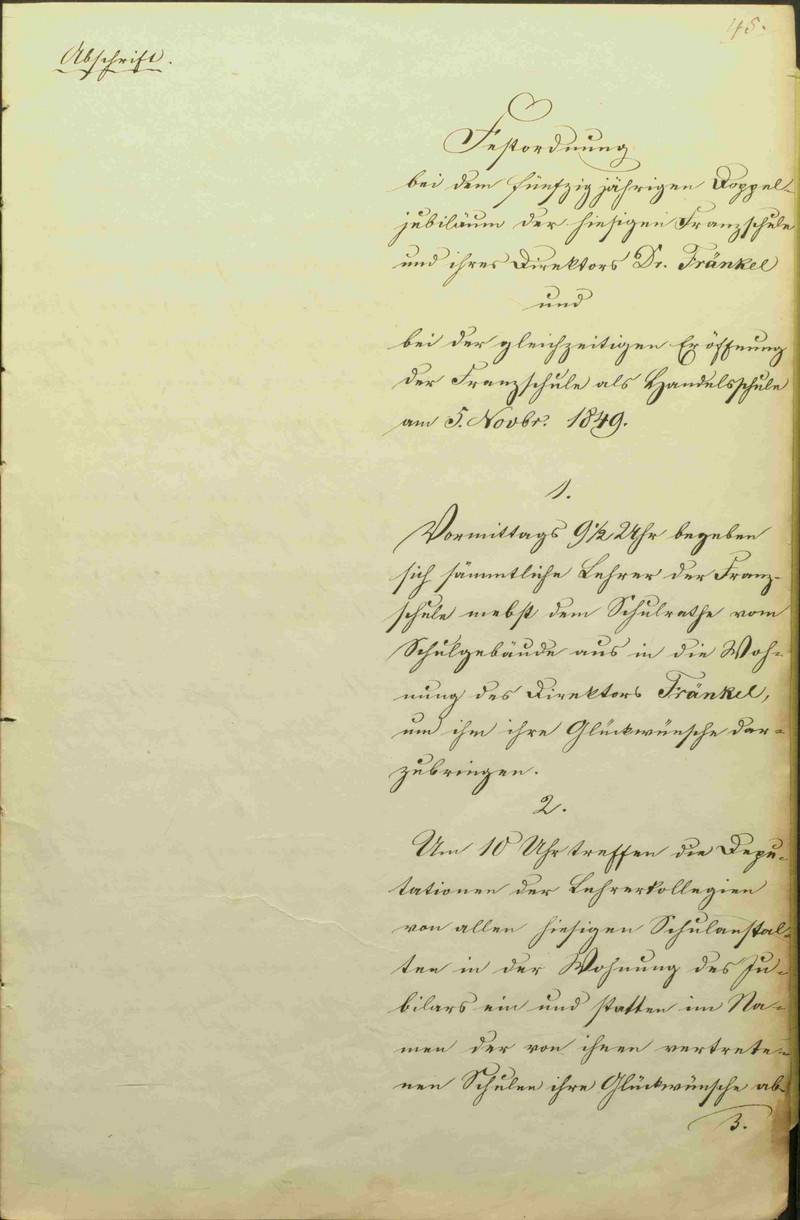 45.
Abschrift.
Festordnung
bei dem fünfzigjährigen Doppel-
jubiläum der hiesigen Franzschule
und ihres Direktors Dr. Fränkel
und
bei der gleichzeitigen Eröffnung
der Franzschule als Handelsschule
am 5. Novbr. 1849.
1.
Vormittags 9 1/2 Uhr begeben
sich sämmtliche Lehrer der Franz-
schule nebst dem Schulrathe vom
Schulgebäude aus in die Woh-
nung des Direktors Fränkel,
um ihm ihre Glückwünsche dar-
zubringen.
2.
Um 10 Uhr treffen die Depu-
tationen der Lehrerkollegien
von allen hiesigen Schulanstal-
ten in der Wohnung des Ju-
bilars ein und statten im Na-
men der von ihnen vertrete-
nen Schulen ihre Glückwünsche ab.
3.